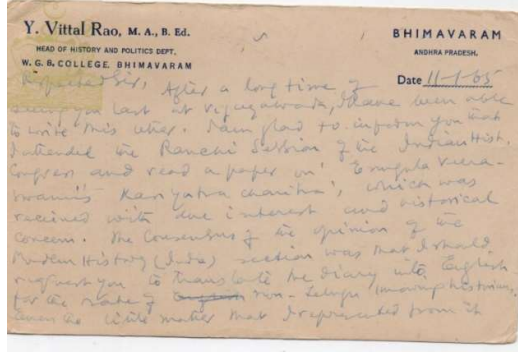 Y. Vittal Rao, M. A., B. Ed.
HEAD OF HISTORY AND POLITICS DEPT.
W. G. B. COLLEGE, BHIMAVARAM
BHIMAVARAM
ANDHRA PRADESH,
Date 11-1-65
Respected Sir, After a long time of
seeing you last at Vijayawada, I have been able
to write this letter. I am glad to inform you that
I attended the Ranchi Session of the Indian Hist.
Congress and read a paper on 'Enugula Veera-
swami's Kasiyatra charitra', which was
received with due interest and historical
concern. The Consensus of the opinion of the
Modern History (India) section was that I should
request you to translate the diary into English
for the sake of non-Telugu knowing historians.
Even the little matter that I represented from it